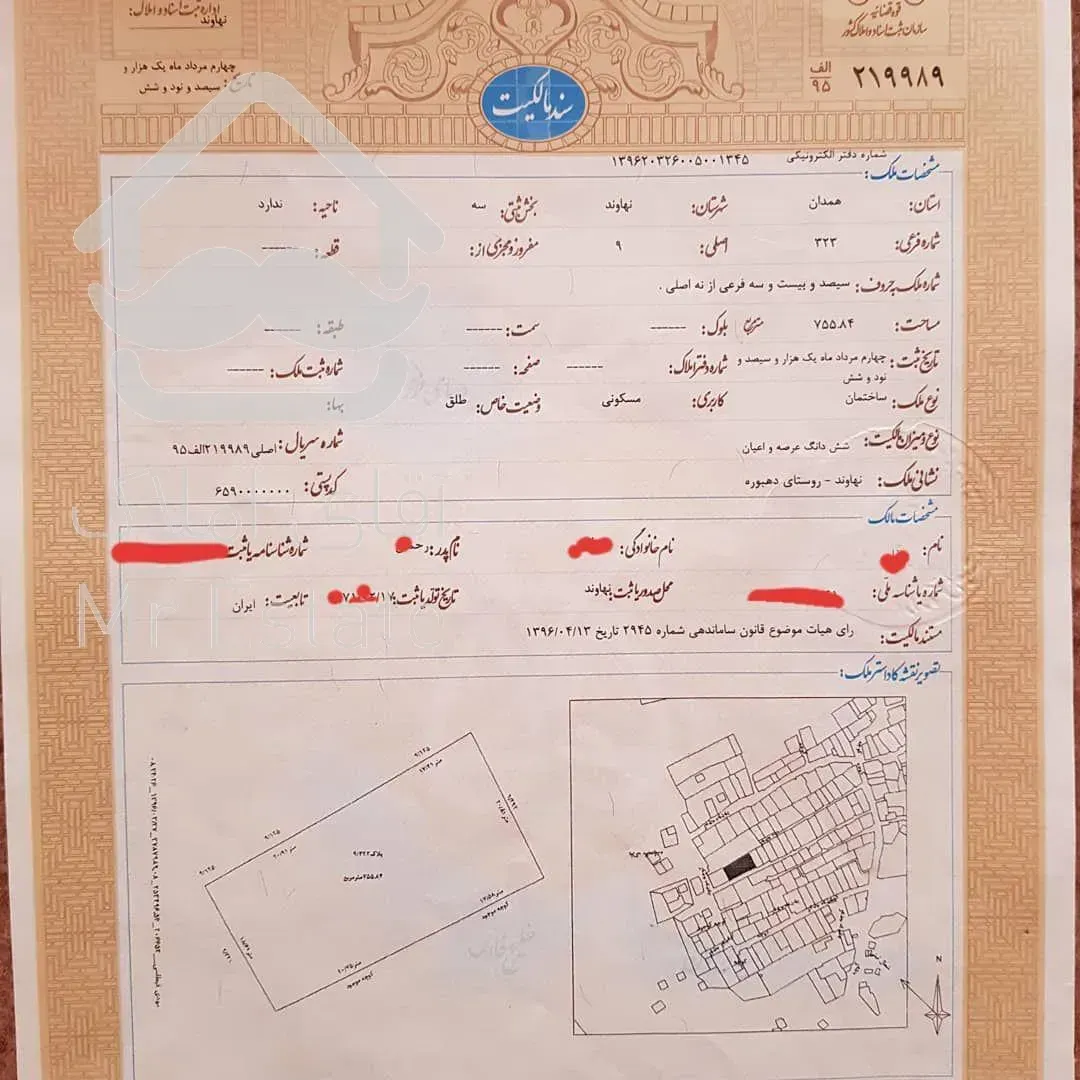 قوه قضائیه
سازمان ثبت اسناد و املاک کشور
اداره ثبت اسناد و املاک:
نهاوند
۲۱۹۹۸۹ الف ۹۵
سند مالکیت
تاریخ: چهارم مرداد ماه یک هزار و سیصد و نود و شش
شماره دفتر الکترونیکی ۱۳۹۶۲۰۳۲۶۰۰۵۰۰۱۳۴۵
مشخصات ملک:
استان: همدان شهرستان: نهاوند بخش ثبتی: سه ناحیه: ندارد
شماره فرعی: ۳۲۳ اصلی: ۹ مفروز و مجزی از: قطعه: ------
شماره ملک به حروف: سیصد و بیست و سه فرعی از نه اصلی .
مساحت: ۷۵۵.۸۴ مترمربع بلوک: ------ سمت: ------ طبقه: ------
تاریخ ثبت: چهارم مرداد ماه یک هزار و سیصد و نود و شش شماره دفتر املاک: ------ صفحه: ------ شماره ثبت ملک: ------
نوع ملک: ساختمان کاربری: مسکونی وضعیت خاص: طلق بها:
نوع و میزان مالکیت: شش دانگ عرصه و اعیان شماره سریال: اصلی۲۱۹۹۸۹الف۹۵
نشانی ملک: نهاوند - روستای دهبوره کدپستی: ۶۵۹۰۰۰۰۰۰۰
مشخصات مالک
نام: نام خانوادگی: نام پدر: شماره شناسنامه یا ثبت
شماره یا شناسه ملی: محل صدور یا ثبت: نهاوند تاریخ تولد یا ثبت: تابعیت: ایران
مستند مالکیت: رای هیات موضوع قانون ساماندهی شماره ۲۹۴۵ تاریخ ۱۳۹۶/۰۴/۱۳
تصویر نقشه کاداستر ملک:
پلاک ۹/۳۲۳
۷۵۵.۸۴ مترمربع
کوچه موجود
کوچه موجود
N
آقای املاک
Mr Estate